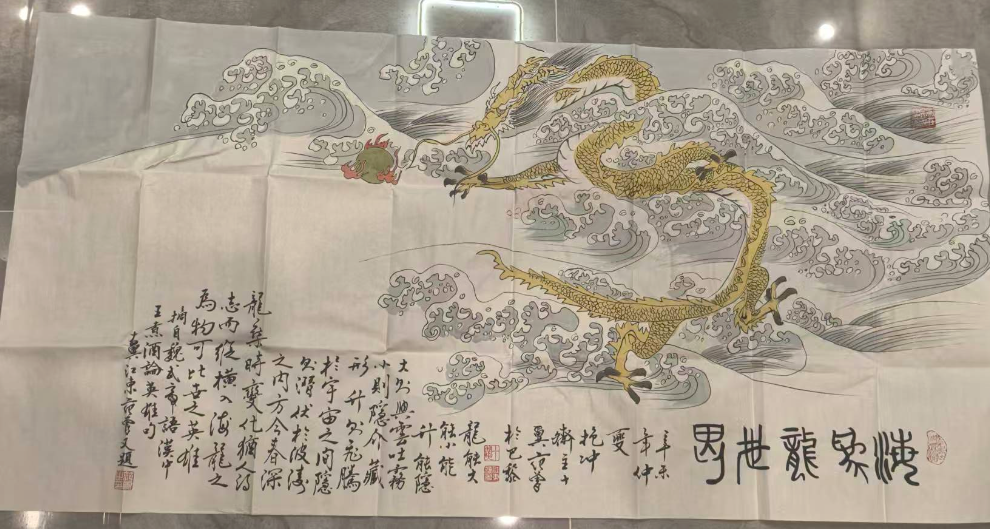 海為龍世界
辛未
夏
抱冲
龍能大
能小能
升能隱
大則興雲吐霧
小則隱介藏
形升則飛騰
於宇宙之間隱
則潛伏於波濤
之內方今春深
龍乘時變化猶人得
志而縱橫海龍之
為物可比世之英雄
摘自魏武帝語漢中
王煮酒論英雄句
十翼江東范曾又題